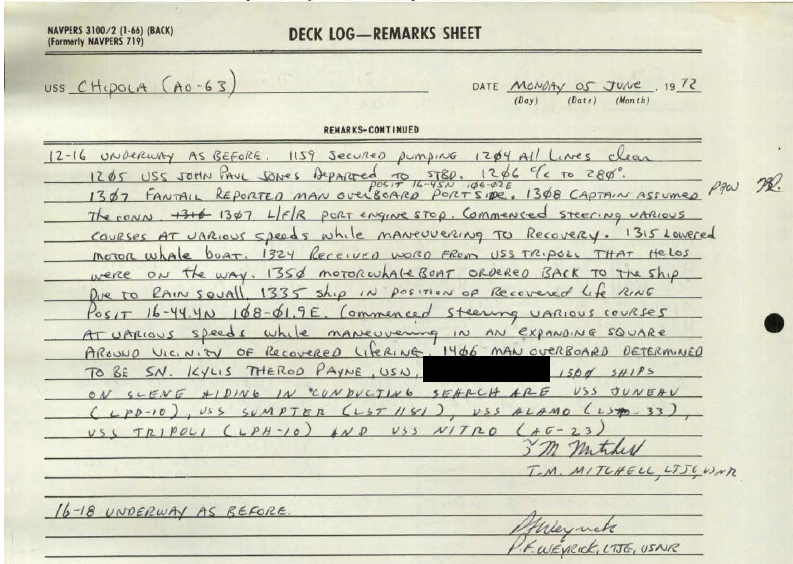 NAVPERS 3100/2 (1-66) (BACK)
(Formerly NAVPERS 719)
DECK LOG—REMARKS SHEET
USS CHIPOLA (AO-63)
DATE MONDAY 05 JUNE, 1972
(Day) (Date) (Month)
REMARKS-CONTINUED
12-16 UNDERWAY AS BEFORE. 1159 Secured pumping 1204 All Lines clear
1205 USS JOHN PAUL JONES DEPARTED TO STBD. 1206 C/C TO 280°.
POSIT 16-45N 108-02E
1307 FANTAIL REPORTED MAN OVERBOARD PORT SIDE. 1308 CAPTAIN ASSUMED
The CONN. 1310 1307 L/F/R PORT ENGINE STOP. Commenced STEERING VARIOUS
COURSES AT VARIOUS speeds while MANEUVERING TO RECOVERY. 1315 Lowered
MOTOR WHALE BOAT. 1324 RECEIVED WORD FROM USS TRIPOLI THAT HELOS
WERE ON THE WAY. 1350 MOTORWHALEBOAT ORDERED BACK TO THE SHIP
DUE TO RAIN SQUALL. 1335 SHIP IN POSITION OF RECOVERED LIFE RING
POSIT 16-44.4N 108-01.9E. Commenced STEERING VARIOUS COURSES
AT VARIOUS speeds while MANEUVERING IN AN EXPANDING SQUARE
AROUND VICINITY OF RECOVERED LIFERING. 1406 MAN OVERBOARD DETERMINED
TO BE SN. KYLIS THEROD PAYNE, USN, 1500 SHIPS
ON SCENE AIDING IN CONDUCTING SEARCH ARE USS JUNEAU
(LPD-10), USS SUMPTER (LST 1181), USS ALAMO (LSD-33),
USS TRIPOLI (LPH-10) AND USS NITRO (AE-23)
T M Mitchell
T.M. MITCHELL, LTJG, USNR
16-18 UNDERWAY AS BEFORE.
P F Weyrick
P.F. WEYRICK, LTJG, USNR